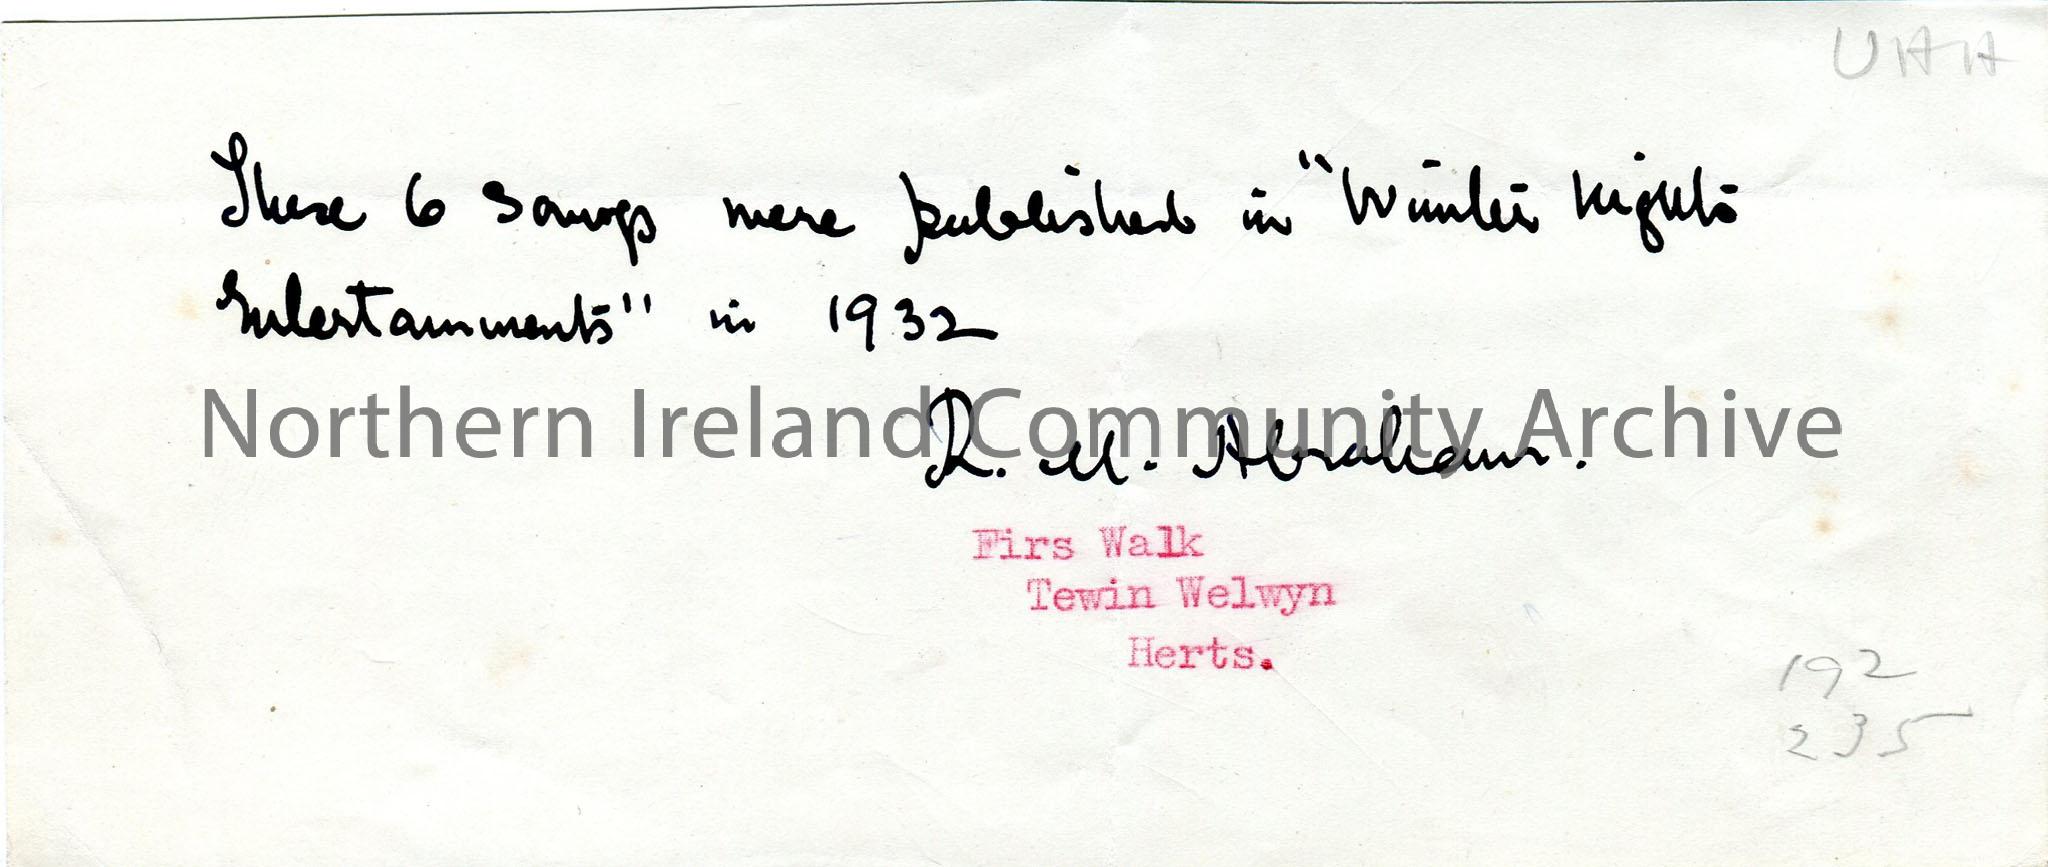 UHH
These 6 Songs were published in "Winter Nights
Entertainments" in 1932
Northern Ireland Community Archive
R. M. Abraham.
Firs Walk
Tewin Welwyn
Herts.
192
235